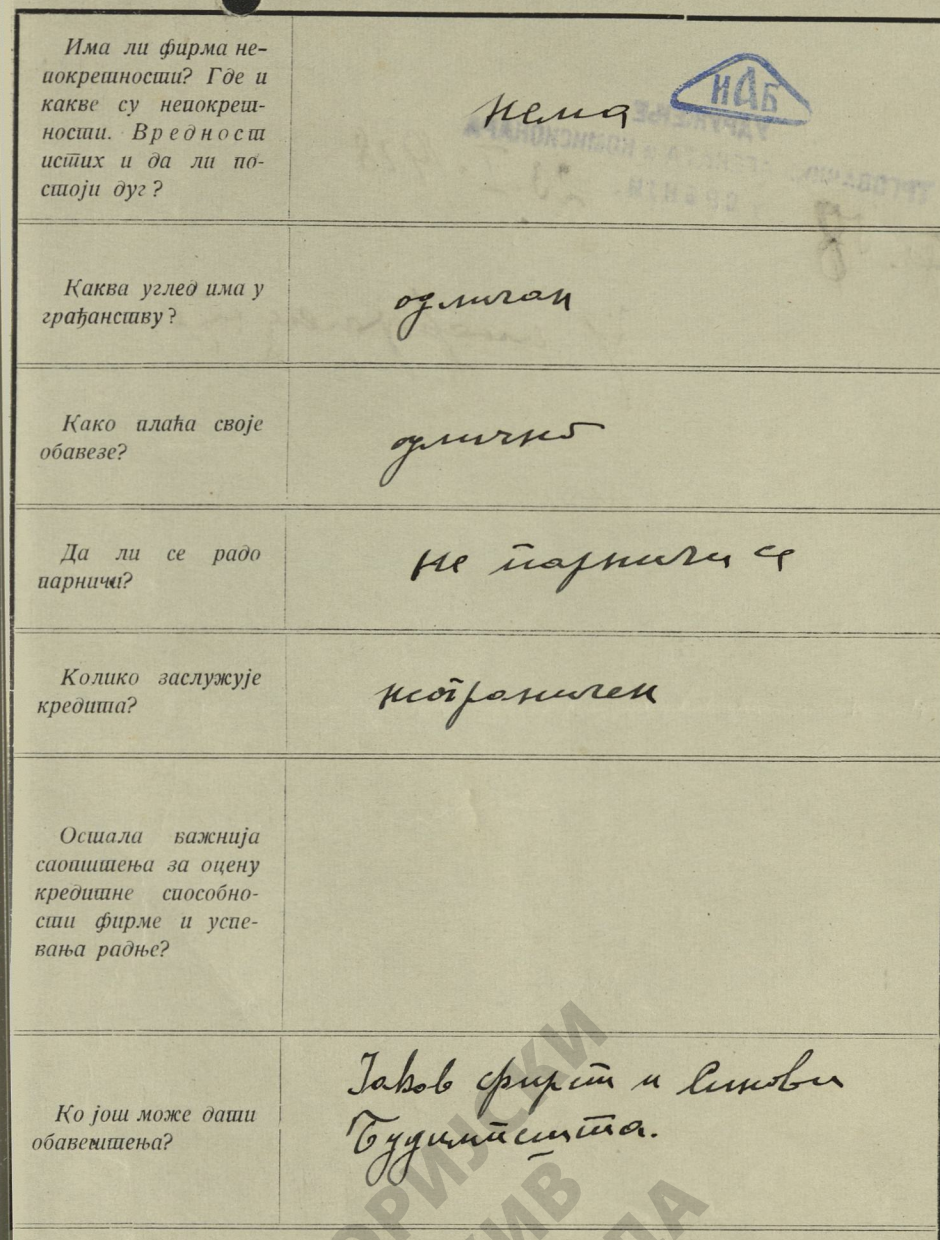 Има ли фирма не-
покретности? Где и
какве су непокрет-
ности. Вредност
истих и да ли по-
стоји дуг?
нема
ИАБ
Каква углед има у
грађанству?
одличан
Како плаћа своје
обавезе?
одлично
Да ли се радо
парничи?
не парничи се
Колико заслужује
кредита?
неограничен
Остала важнија
саопштења за оцену
кредитне способно-
сти фирме и успе-
вања радње?
Ко још може дати
обавештења?
Јаков Фирст и Синови
Будимпешта.